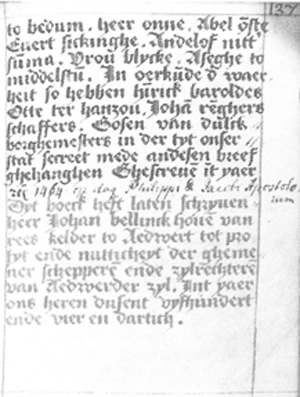 137
to bedum. heer onne. Abel oste
Evert sickinghe. Andelof nitt
suma. Vrou blycke. Aseghe to
middelstu. In oerkude d waer
heit so hebben hurick baroldes
Otte ter hanzou. Joha renghers
schaffers. Gosen van dulck
borghemesters in der tyt onser
stat secreet mede andesen breef
ghehanghen Ghescreue it yaer
1464 op dag Philippi & Jacobi Apostolo
rum
Dyt boeck heft laten schryuen
heer Johan bellinck houe van
rees kelder to Aedwert tot pro
fyt ende nutticheyt der gheme
ner scheppere ende zylrechtere
van Aedwerder zyl. Int yaer
ons heren dusent vyfhundert
ende vier en dartich.